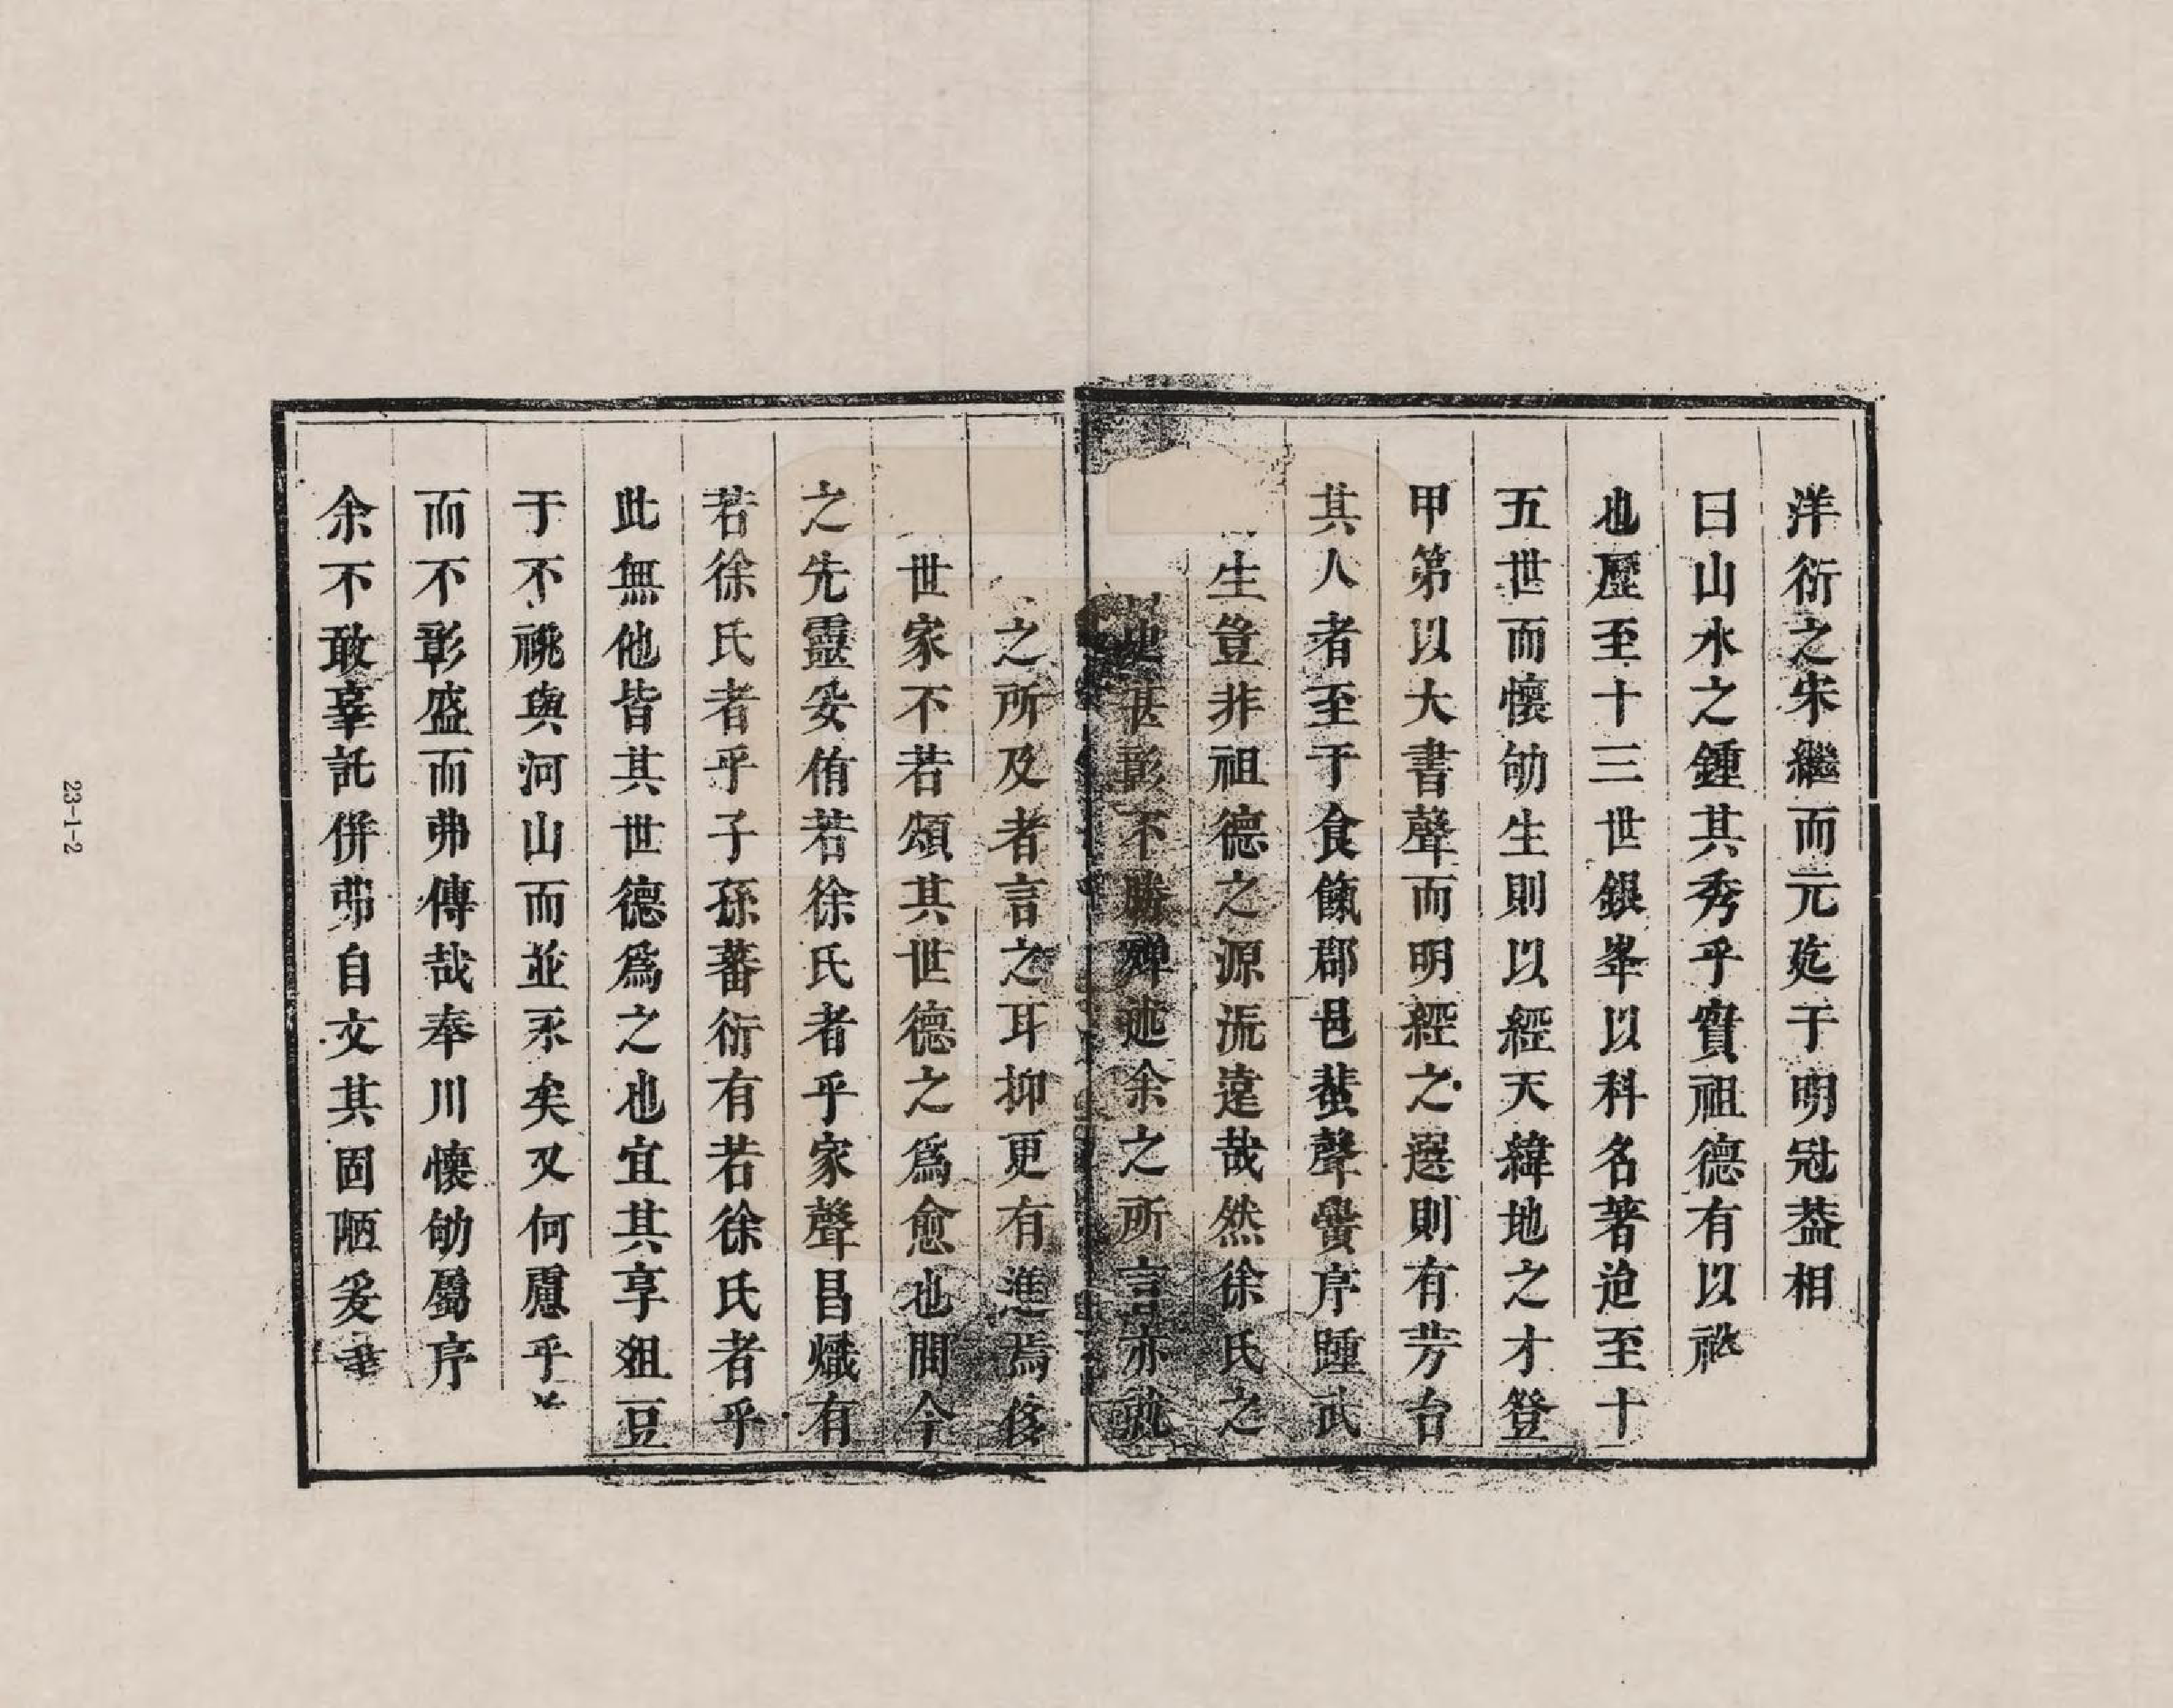 洋衍之宋繼而元迄于明冠葢相
曰山水之鍾其秀乎實祖德有以
也歷至十三世銀峯以科名著迨至十
五世而懷劬生則以經天緯地之才登
甲第以大書聲而明經之選則有芳台
其人者至于食餼郡邑蜚聲黌序踵武
生豈非祖德之源流遠哉然徐氏之
甚彰不勝殫述余之所言亦就
之所及者言之耳抑更有進焉侈
世家不若頌其世德之爲愈也聞今
之先靈妥侑若徐氏者乎家聲昌熾有
若徐氏者乎子孫蕃衍有若徐氏者乎
此無他皆其世德爲之也宜其享俎豆
于不祧與河山而並永矣又何慮乎
而不彰盛而弗傳哉奉川懷劬屬序
余不敢辜託併弗自文其固陋爰
23-1-2